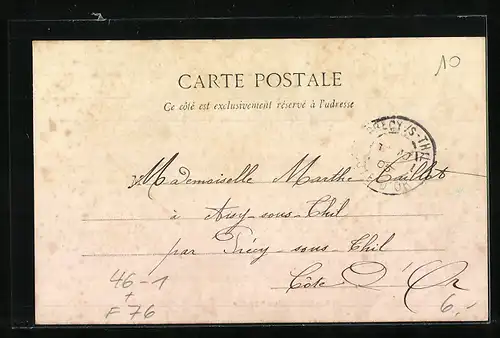 10
CARTE POSTALE
Ce côté est exclusivement réservé à l'adresse
PRÉCY-/S-THIL
Mademoiselle Marthe Caillot
à Aisy-sous-Thil
par Précy-sous-Thil
Côte D'Or
46-1
+
F 76
6,-